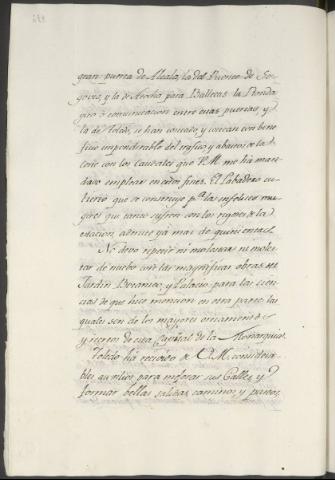 gran puerta de Alcala, la del Puente de Se-
govia, y la de Atocha para Ballecas. La Ronda
giro ò comunicacion entre estas puertas, y
la de Toledo, se han costeado, y costean con bene-
ficio imponderable del trafico y abastos de la
Corte con los Caudales que V.M. me ha man-
dado emplear en estos fines. El Labadero cu-
bierto que se construyò p.ª las infelices mu-
geres que tanto sufren con los rigores de la
estacion, admite ya mas de quinientas.
No devo repetir ni molestar
de nuebo con las magnificas obras del
Jardin Botanico, y Palacio para las cien-
cias de que hice mencion en otra parte: las
quales son de los mayores ornamentos
y recreos de esta Capital de la Monarquia.
Toledo ha recivido de V.M. considera-
bles auxilios para mejorar sus Calles, y
formar bellas salidas, caminos y paseos,